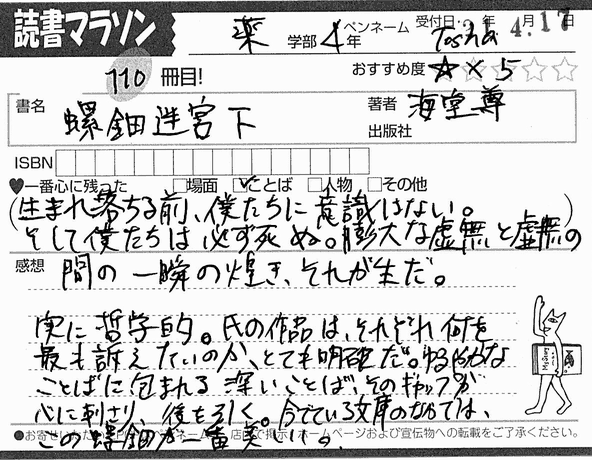 読書マラソン
薬 学部 4年 ペンネーム Tosha 受付日・21年 4月17日
110 冊目!
おすすめ度 ☆×5
書名 螺鈿迷宮 下
著者 海堂尊
出版社
ISBN
♥一番心に残った □場面 ☑ことば □人物 □その他
(生まれ落ちる前、僕たちに意識はない。)
そして僕たちは必ず死ぬ。膨大な虚無と虚無の
間の一瞬の煌き、それが生だ。
感想
実に哲学的。氏の作品は、それぞれ何を
最も訴えたいのか、とても明確だ。ゆるやかな
ことばに包まれる深いことば、そのギャップが
心に刺さり、後を引く。今でている文庫のなかでは、
この螺鈿が一番美しい。
●お寄せいただ ペンネーム 店 で掲示・ホームページおよび宣伝物への転載をご了承ください。